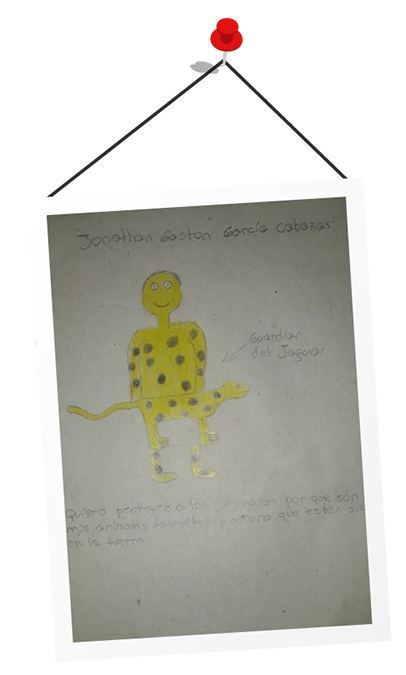 Jonathan Gaston García Cabazas
Guardian
del Jaguar
Quiero proteger a los jaguares por que són
mis animales favoritos y quiero que esten
en la tierra